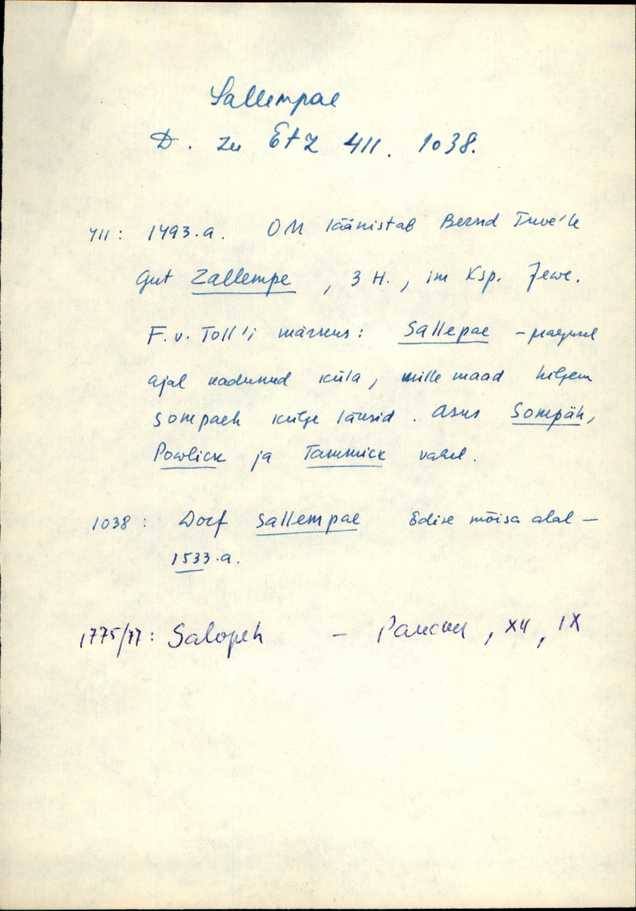 Sallempae
D. zu EtZ 411. 1038.
411: 1493.a. OM läänistab Bernd Tuve'le
Gut Zallempe, 3 H., im Ksp. Jewe.
F. v. Toll'i märkus: Sallepae – praegusel
ajal kadunud küla, mille maad hiljem
Sompaeh külge läksid. Asus Sompäh,
Powlick ja Tammick vahel.
1038: Dorf Sallempae Edise mõisa alal –
1533.a.
1775/77: Salopeh – , XII, IX